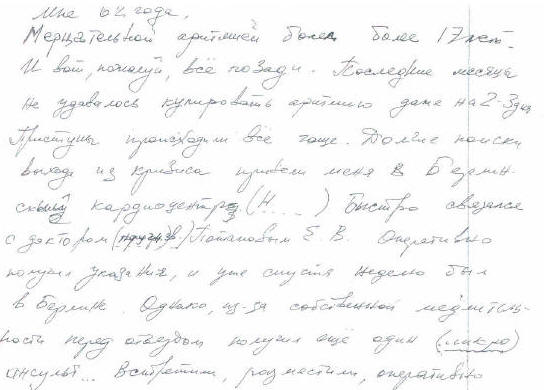 Мне 62 года.
Мерцательной аритмией болел более 17 лет.
И вот, пожалуй, всё позади. Последние месяцы
не удавалось купировать аритмию даже на 2-3 дня
Приступы происходили всё чаще. Долгие поиски
выхода из кризиса привели меня в Берлин-
ский кардиоцентр (Н....) Быстро связался
с доктором Потаповым Е. В. Оперативно
получил указания, и уже спустя неделю был
в Берлине. Однако, из-за собственной медлитель-
ности перед отъездом получил ещё один (микро)
инсульт... Встретили, разместили, оперативно